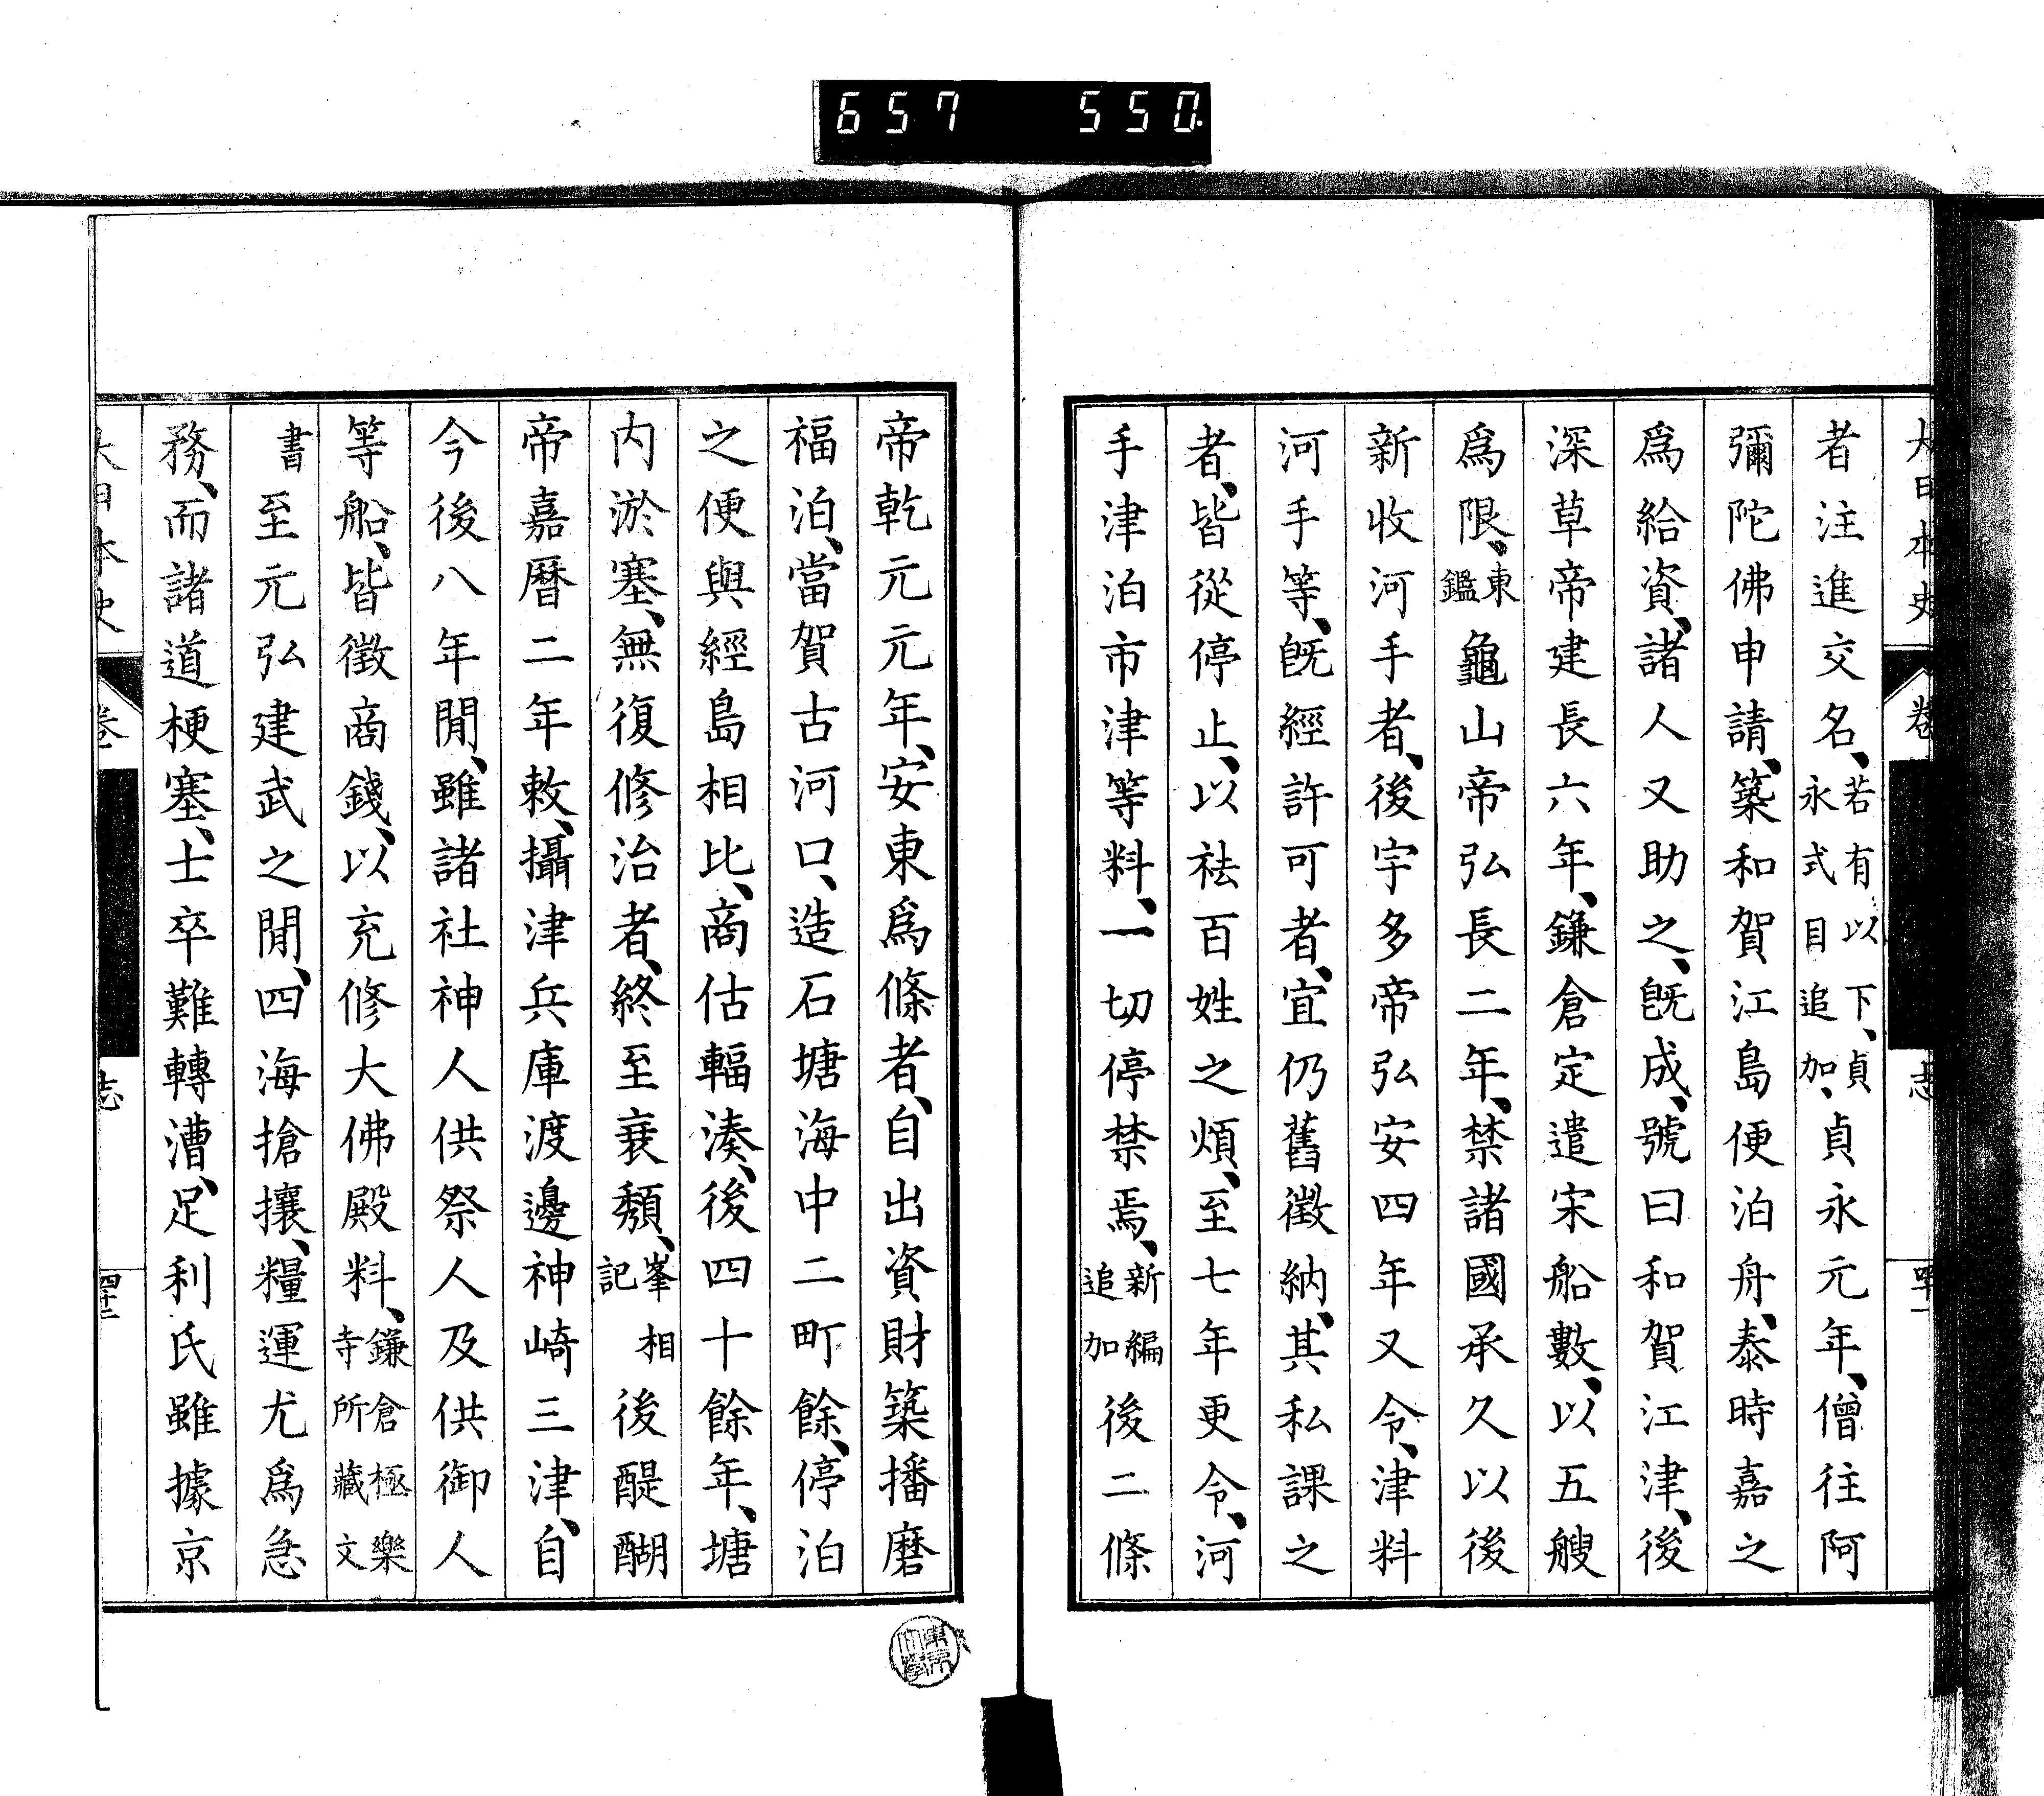 657 550
大日本史 卷 志 四十一
者注進交名、若有以下、貞永式目追加、貞永元年、僧往阿
彌陀佛申請、築和賀江島便泊舟、泰時嘉之
爲給資、諸人又助之、既成、號曰和賀江津、後
深草帝建長六年、鎌倉定遣宋船數、以五艘
爲限、東鑑龜山帝弘長二年、禁諸國承久以後
新收河手者、後宇多帝弘安四年又令、津料
河手等、既經許可者、宜仍舊徵納、其私課之
者、皆從停止、以祛百姓之煩、至七年更令、河
手津泊市津等料、一切停禁焉、新編追加後二條
帝乾元元年、安東爲條者、自出資財築播磨
福泊、當賀古河口、造石塘海中二町餘、停泊
之便與經島相比、商估輻湊、後四十餘年、塘
内淤塞、無復修治者、終至衰頽、峯相記後醍醐
帝嘉曆二年敕、攝津兵庫渡邊神崎三津、自
今後八年閒、雖諸社神人供祭人及供御人
等船、皆徵商錢、以充修大佛殿料、鎌倉極樂寺所藏文
書至元弘建武之閒、四海搶攘、糧運尤爲急
務、而諸道梗塞、士卒難轉漕、足利氏雖據京
大日本史 卷 志 四十二